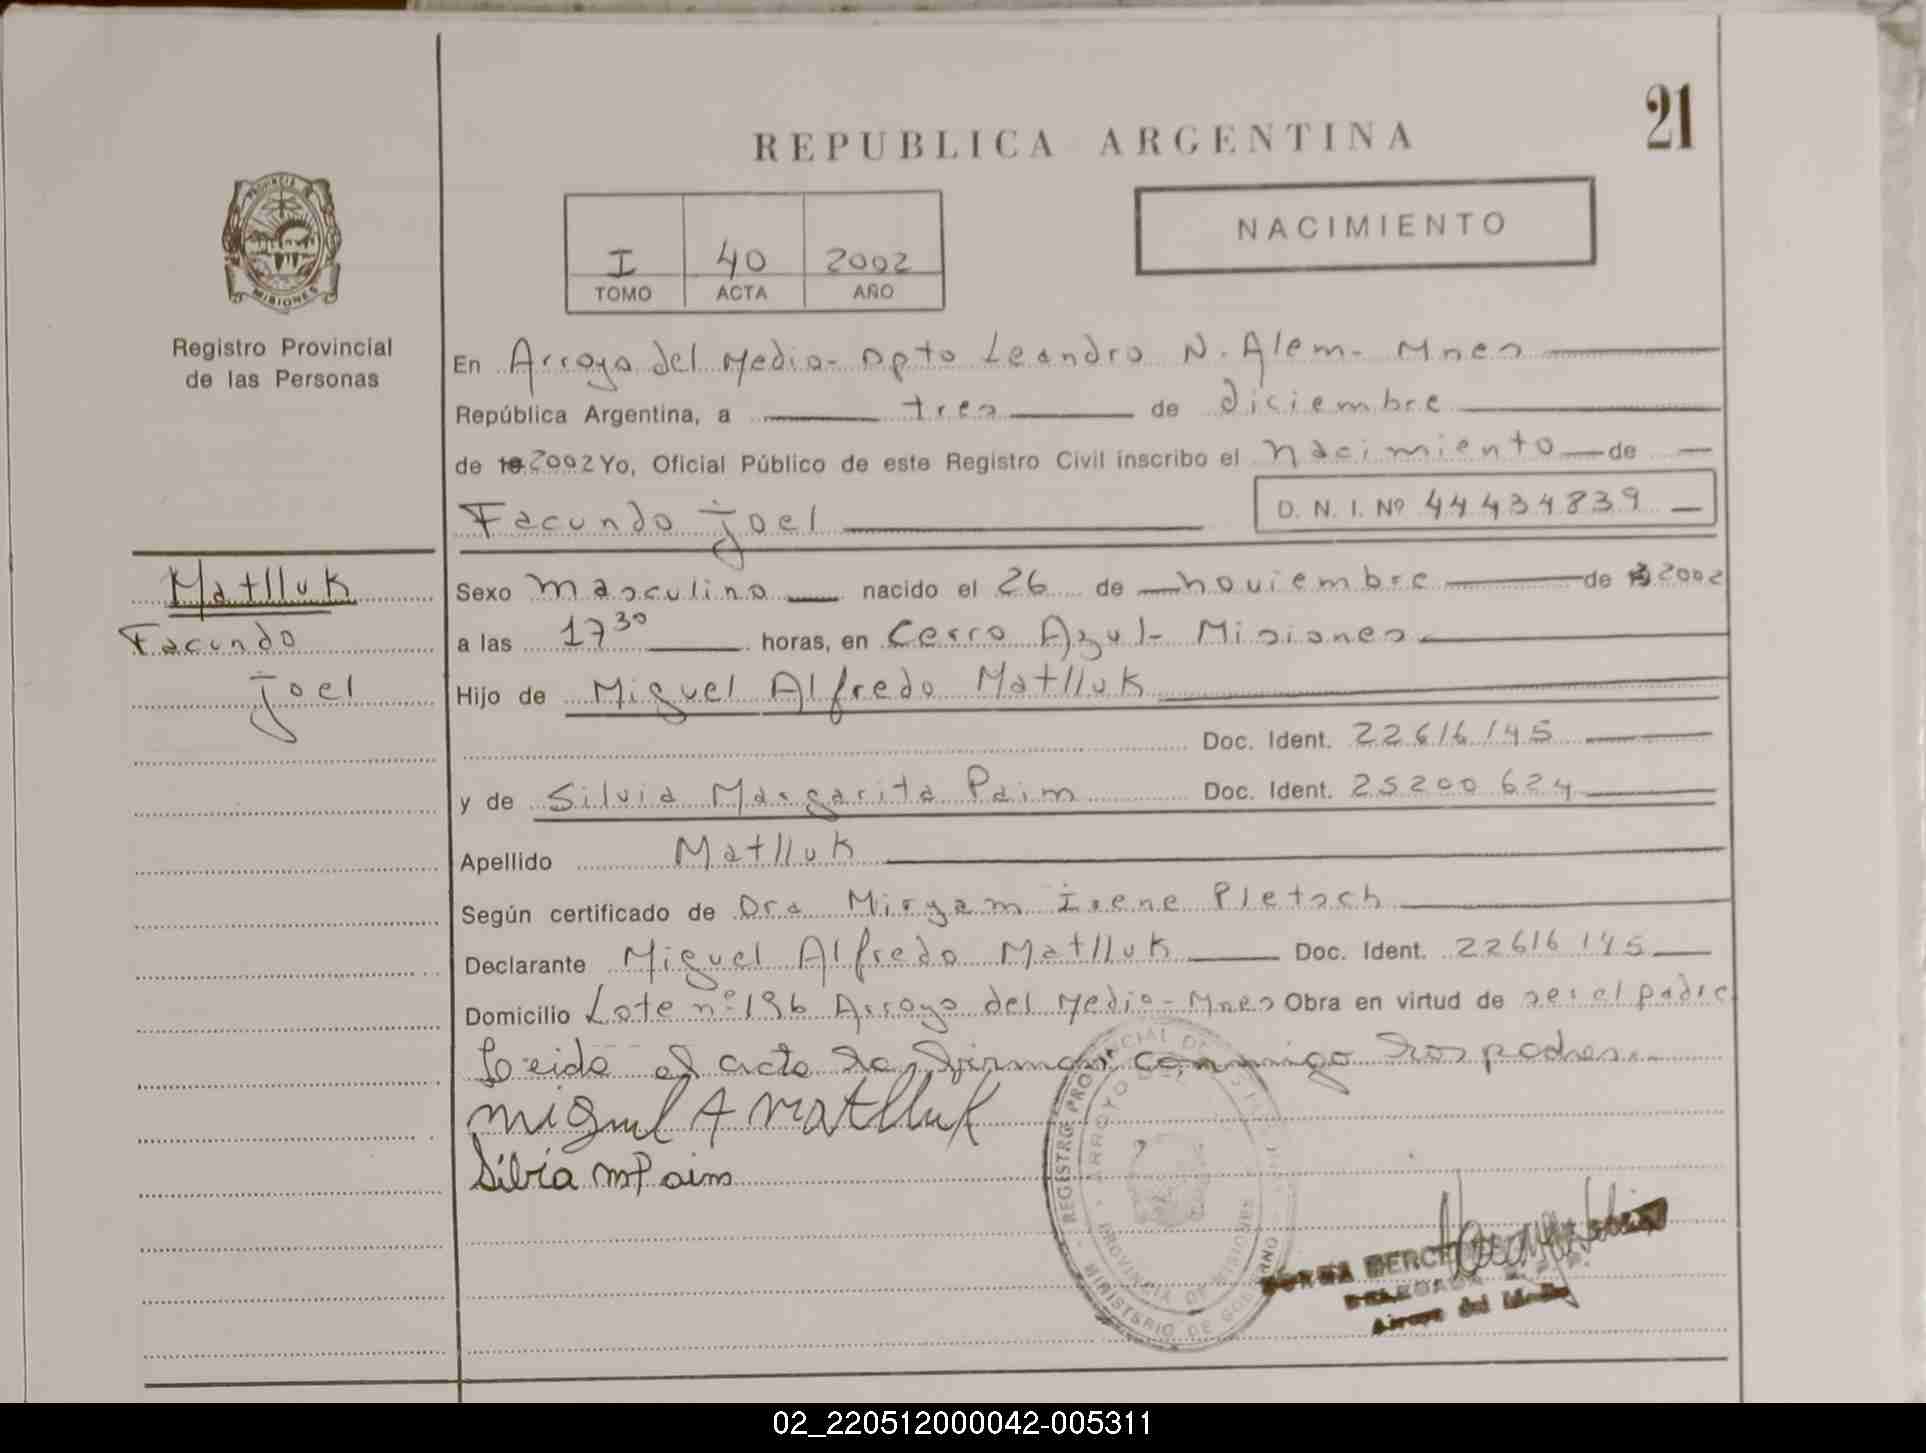 21
REPUBLICA ARGENTINA
NACIMIENTO
I 40 2002
TOMO ACTA AÑO
PROVINCIA
MISIONES
Registro Provincial
de las Personas
En Arroyo del Medio - Dpto Leandro N. Alem - Mnes
República Argentina, a tres de diciembre
de 2002 Yo, Oficial Público de este Registro Civil inscribo el nacimiento de
Facundo Joel
D. N. I. Nº 44434839
Matlluk
Facundo
Joel
Sexo masculino nacido el 26 de noviembre de 2002
a las 17 30 horas, en Cerro Azul - Misiones
Hijo de Miguel Alfredo Matlluk
Doc. Ident. 22616145
y de Silvia Margarita Paim Doc. Ident. 25200624
Apellido Matlluk
Según certificado de Dra Miryam Irene Pletsch
Declarante Miguel Alfredo Matlluk Doc. Ident. 22616145
Domicilio Lote nº 196 Arroyo del Medio - Mnes Obra en virtud de ser el padre
Leido el acta la firman conmigo los padres.
Miguel A Matlluk
Silvia M Paim
REGISTRO PROVINCIAL DE
ARROYO DEL
PROVINCIA DE MISIONES
MINISTERIO DE GOBIERNO
DELEGADA
Arroyo del Medio
02_220512000042-005311